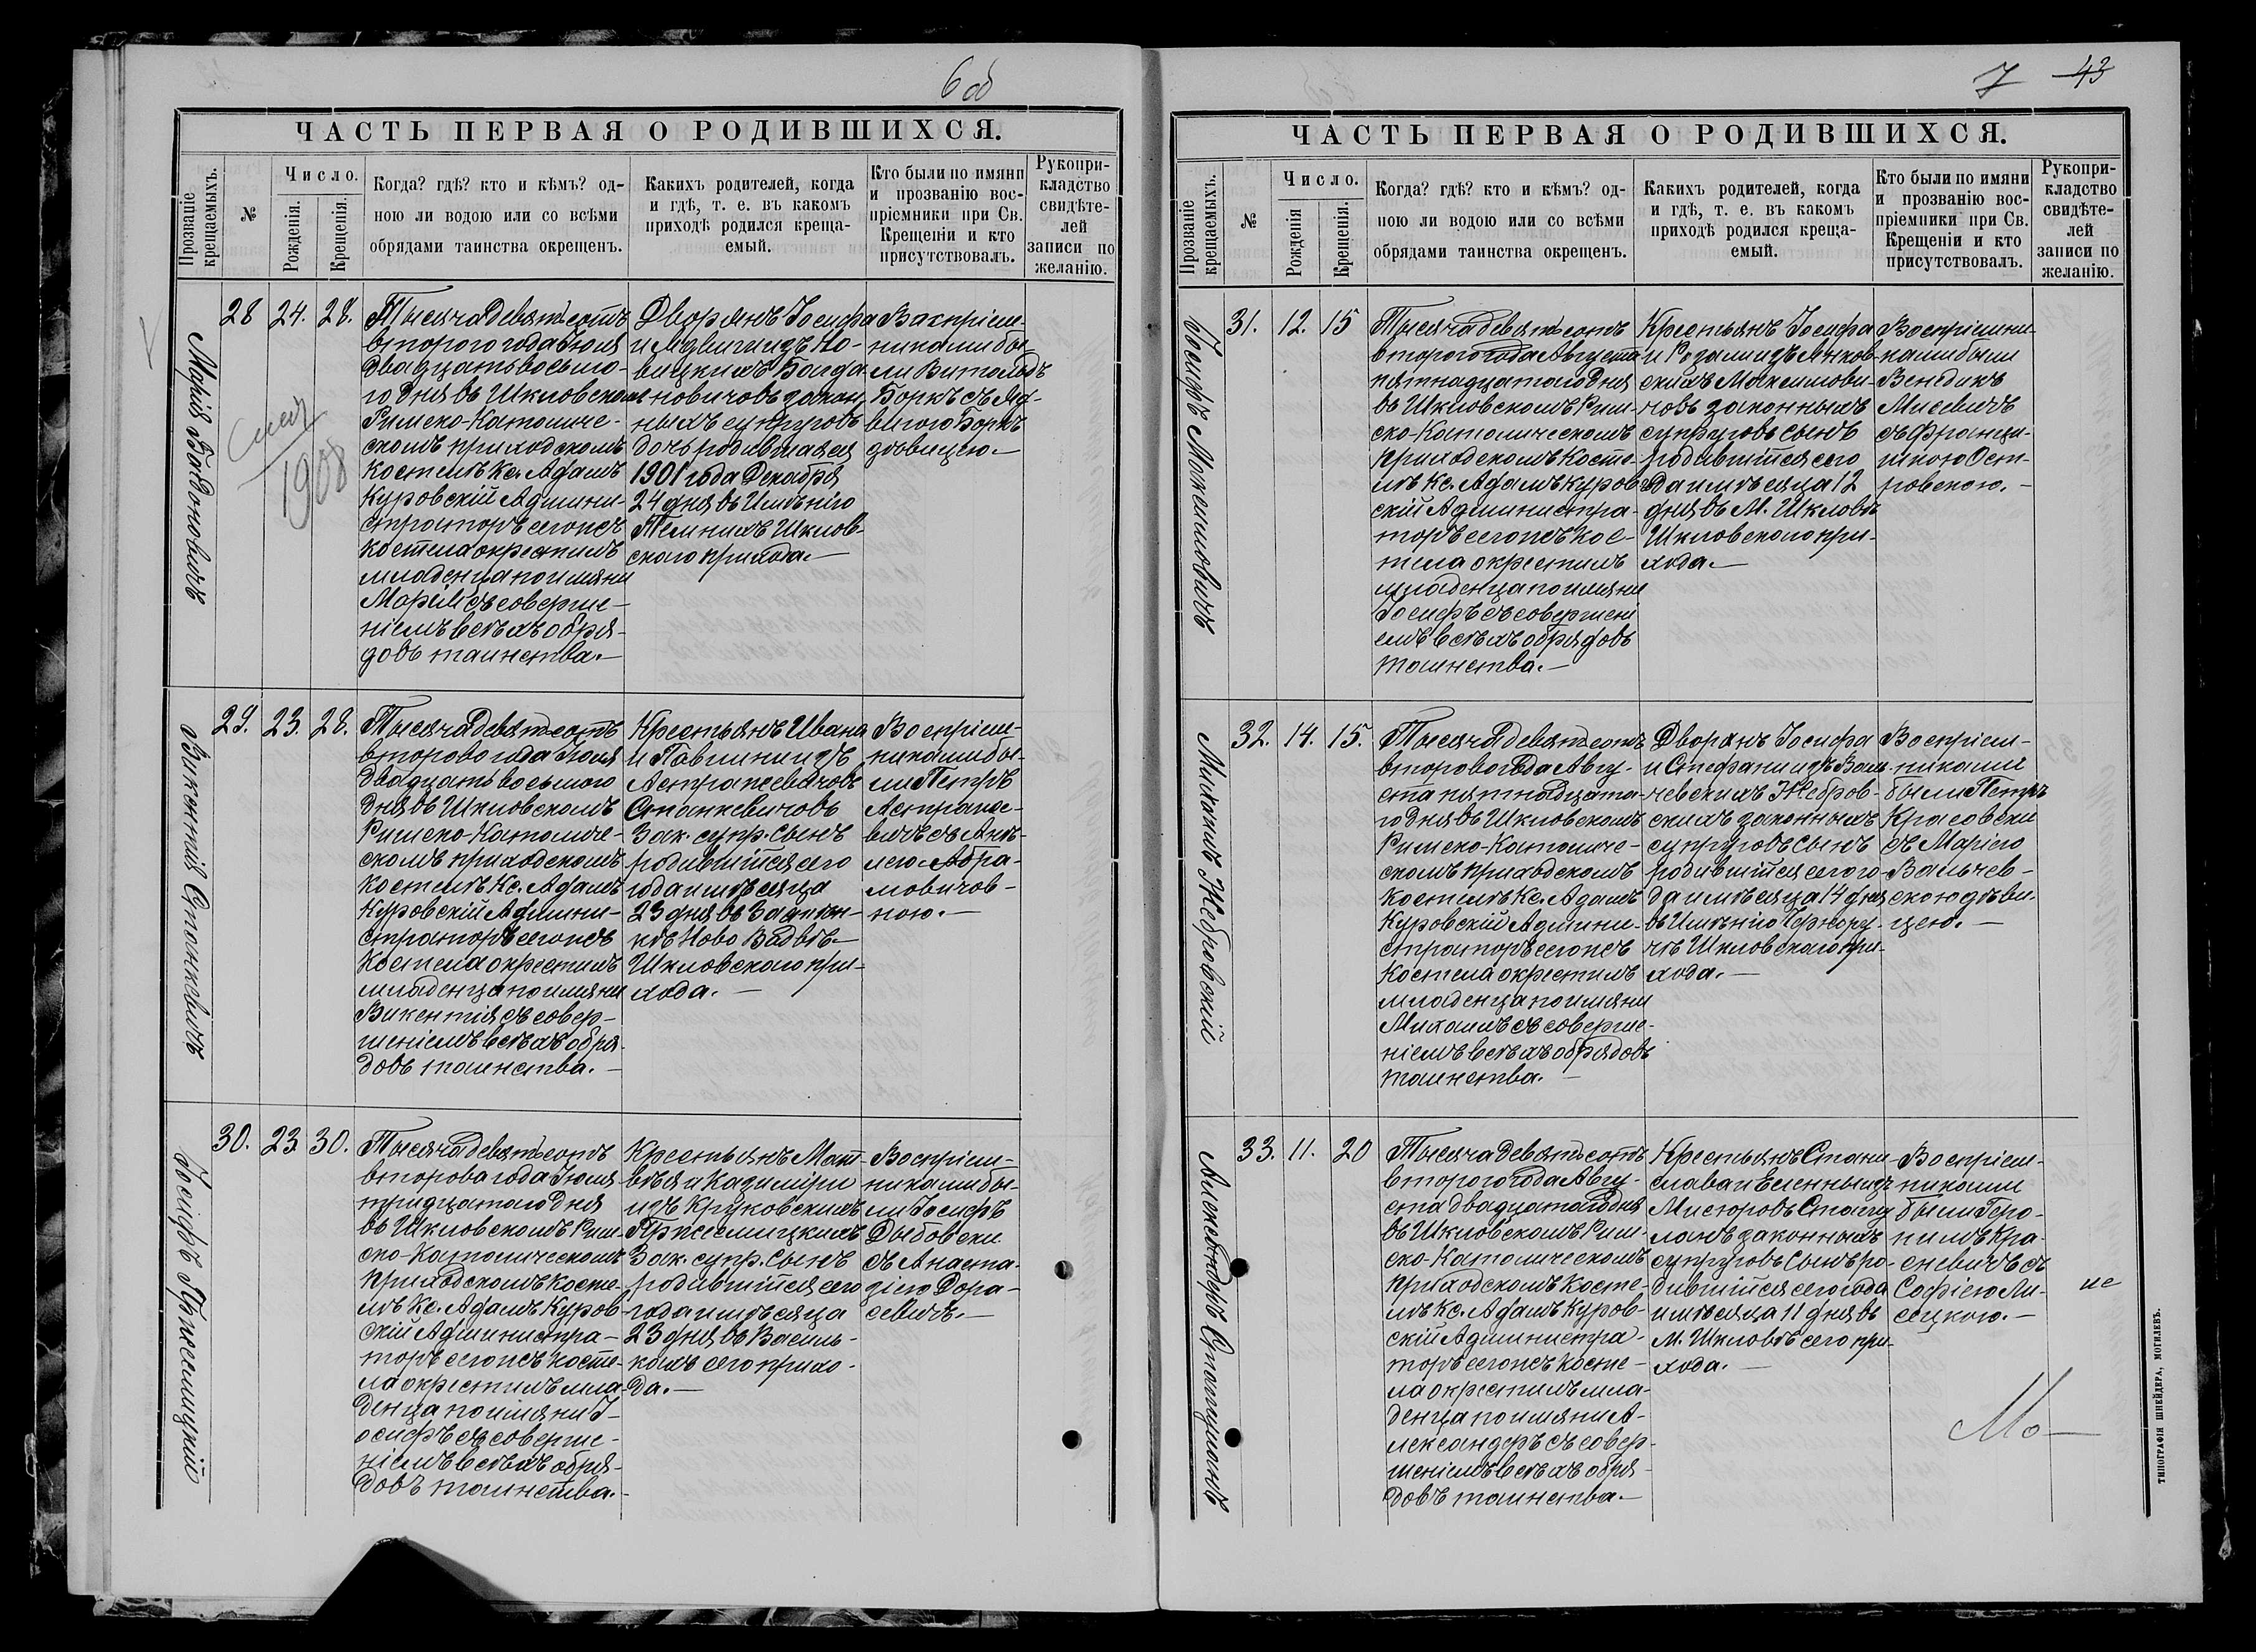 6 об
ЧАСТЬ ПЕРВАЯ О РОДИВШИХСЯ.
Прозваніе крещаемыхъ.
№
Число.
Рожденія.
Крещенія.
Когда? гдѣ? кто и кѣмъ? од-
ною ли водою или со всѣми
обрядами таинства окрещенъ.
Какихъ родителей, когда
и гдѣ, т. е. въ какомъ
приходѣ родился креща-
емый.
Кто были по имяни
и прозванію вос-
пріемники при Св.
Крещеніи и кто
присутствовалъ.
Рукопри-
кладство
свидѣте-
лей
записи по
желанію.
28
24.
28.
Тысяча девятьсотъ
второго года Іюля
двадцать восьмо-
го дня въ Шкловскомъ
Римско-Католиче-
скомъ приходскомъ
костелѣ Кс. Адамъ
Куровскій Админи-
страторъ сегожъ
костела окрестилъ
младенца по имяни
Марія съ соверше-
ніемъ всѣхъ обря-
довъ таинства.—
Дворянъ Іосифа
и Ядвиги изъ Но-
вицкихъ Богда-
новичовъ закон-
ныхъ супруговъ
дочь родившаяся
1901 года Декабря
24 дня въ Имѣніи
Шклов-
ского прихода.—
ли Витольдъ
Боркъ съ Яд-
вигою Боркъ
дѣвицею.—
1908
29.
23.
28.
Викентій Станкевичъ
Тысяча девятьсотъ
второво года Іюля
двадцать восьмого
дня въ Шкловскомъ
Римско-Католиче-
скомъ приходскомъ
костелѣ Кс. Адамъ
Куровскій Админи-
страторъ сегожъ
костела окрестилъ
младенца по имяни
Викентія съ совер-
шеніемъ всѣхъ обря-
довъ таинства.—
Крестьянъ Ивана
и Павлини изъ
Астрапкевичовъ
Станкевичовъ
Зак. супр. сынъ
родившійся сего
года и мѣсяца
23 дня въ
Шкловского при-
хода.—
Воспріем-
никами бы-
ли Петръ
съ
Абра-
мовичов-
ною.—
30.
23
30.
Іосифъ Пржеслицкій
Тысяча девятьсотъ
второва года Іюля
тридцатого дня
въ Шкловскомъ Рим-
ско-Католическомъ
приходскомъ косте-
лѣ Кс. Адамъ Куров-
скій Администра-
торъ сегожъ косте-
ла окрестилъ мла-
денца по имяни І-
осифъ съ соверше-
ніемъ всѣхъ обря-
довъ таинства.
Крестьянъ Мат-
вѣя и Казимири
изъ Круковскихъ
Пржеслицкихъ
Зак. супр. сынъ
родившійся сего
года и мѣсяца
23 дня въ Василь-
кахъ сего прихо-
да.—
Воспріем-
никами бы-
ли Іосифъ
Дыбовски
съ Анаста-
зіею Дора-
севичъ.—
7 43
ЧАСТЬ ПЕРВАЯ О РОДИВШИХСЯ.
Прозваніе крещаемыхъ.
№
Число.
Рожденія
Крещенія.
Когда? гдѣ? кто и кѣмъ? од-
ною ли водою или со всѣми
обрядами таинства окрещенъ.
Какихъ родителей, когда
и гдѣ, т. е. въ какомъ
приходѣ родился креща-
емый.
Кто были по имяни
и прозванію вос-
пріемники при Св.
Крещеніи и кто
присутствовалъ.
Рукопри-
кладство
свидѣте-
лей
записи по
желанію.
31.
12.
15
Іосифъ Максимовичъ
Тысяча девятьсотъ
второго года Августа
пятнадцатого дня
въ Шкловскомъ Рим-
ско-Католическомъ
приходскомъ косте-
лѣ Кс. Адамъ Куров-
скій Администра-
торъ сегожъ кос-
тела окрестилъ
младенца по имяни
Іосифъ съ совершені
емъ всѣхъ обрядовъ
таинства.—
Крестьянъ Іосифа
и Розаліи изъ Янков-
скихъ Максимови-
човъ законныхъ
супруговъ сынъ
родившійся сего
года и мѣсяца 12
дня въ М. Шкловѣ
Шкловского при-
хода.—
Воспріемни-
ками были
Венедикъ
Мисевичъ
съ Франци-
шкою Ост-
ровскою.—
32.
14.
15.
Михаилъ Жебровскій
Тысяча девятьсотъ
второво года Авгу-
ста пятнадцата-
го дня въ Шкловскомъ
Римско-Католиче-
скомъ приходскомъ
костелѣ Кс. Адамъ
Куровскій Админи-
страторъ сегожъ
костела окрестилъ
младенца по имяни
Михаилъ съ соверше-
ніемъ всѣхъ обрядовъ
таинства.—
Дворянъ Іосифа
и Стефани изъ Валь-
чевскихъ Жебров-
скихъ законныхъ
супруговъ сынъ
родившійся сего го-
да и мѣсяца 14 дня
въ Имѣніи
Шкловского при-
хода.—
Воспріем-
никами
были Петръ
Красовски
съ Маріею
Вальчев-
скою дѣви-
цею.—
33.
11.
20
Александръ
Тысяча девятьсотъ
второго года Авгу-
ста двадцатого дня
въ Шкловскомъ Рим-
ско-Католическомъ
приходскомъ косте-
лѣ Кс. Адамъ Куров-
скій Администра-
торъ сегожъ косте-
ла окрестилъ мла-
денца по имяни А-
лександеръ съ совер-
шеніемъ всѣхъ обря-
довъ таинства.—
Крестьянъ Стани-
слава и Елены изъ
законныхъ
супруговъ сынъ ро-
дившійся сего года
и мѣсяца 11 дня въ
М. Шкловѣ сего при-
хода.—
Воспріем-
никами
были Геро-
нимъ Кра-
сневичъ съ
Софіею Ли-
сецкою.—
ТИПОГРАФІЯ ШНЕЙДЕРА, МОГИЛЕВЪ.